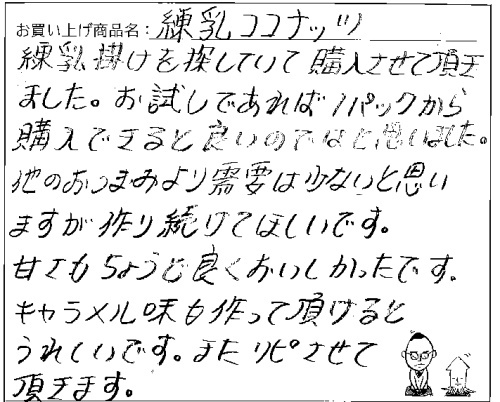 お買い上げ商品名：練乳ココナッツ
練乳掛けを探していて購入させて頂き
ました。お試しであれば1パックから
購入できると良いのではと思いました。
他のおつまみより需要は少ないと思い
ますが作り続けてほしいです。
甘さもちょうど良くおいしかったです。
キャラメル味も作って頂けると
うれしいです。またリピさせて
頂きます。